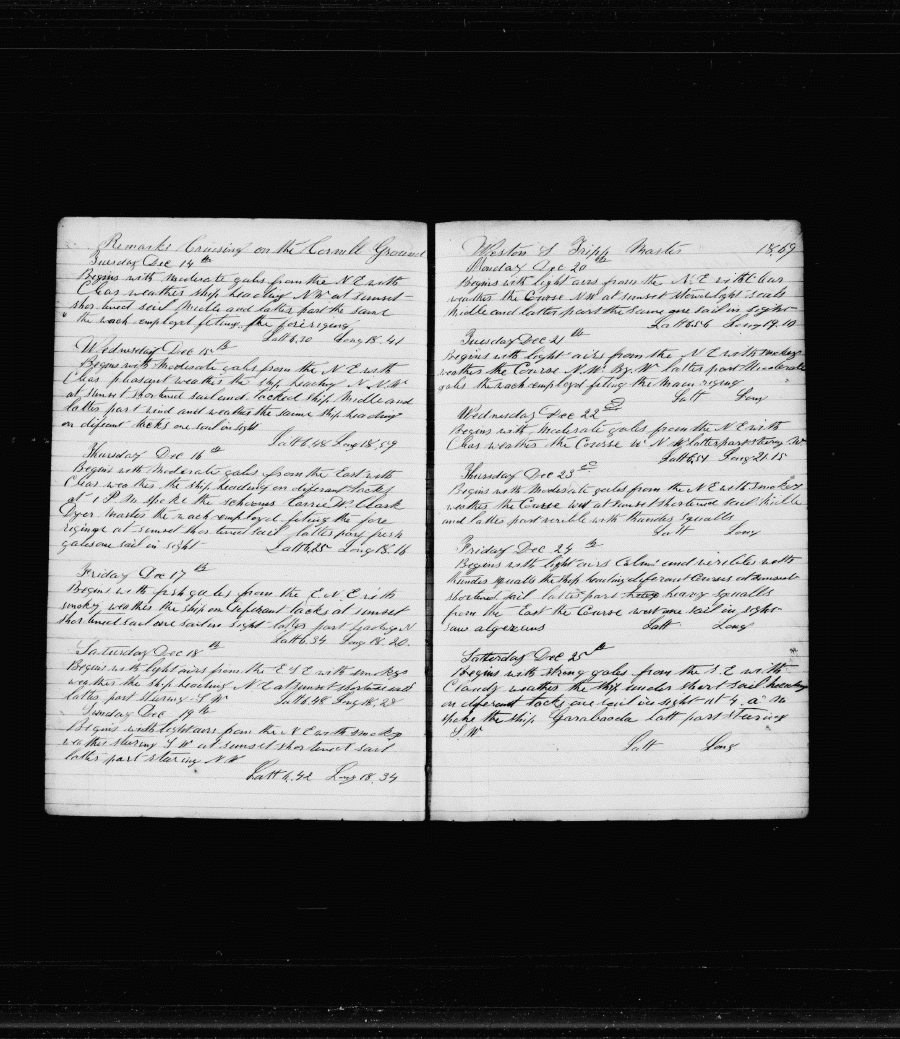 Remarks Cruising on the Ground
Tuesday Dec 14th
Begins with moderate gales from the N E with
Clear weather ship heading NW at sunset
shortened sail Midle and latter part the same
the wach employet fiting the foreriging
Latt 6.30 Long 18.41
Wednesday Dec 15th
Begins with Moderate gales from the N E with
Clear pleasant weather the ship heading N N W
at sunset shortened sail and tacked ship Midle and
latter part wind and weather the same ship heading
on difirent tacks one sail in sight
Latt 6.48 Long 18.59
Thursday Dec 16th
Begins with Moderate gales from the East with
Clear weather the ship heading on diferent tacks
at 1 P.M spoke the schooner Carrie W. Clark
Dyer Master the wach employed fiting the fore
riging at sunset shortened sail latter part fresh
gales one sail in sight Latt 6.25 Long 18.16
Friday Dec 17th
Begins with fresh gales from the E N E with
smoky weather the ship on deferent tacks at sunset
shortened sail one sail in sight latter part heading N
Latt 6.34 Long 18.20
Saturday Dec 18th
Begins with light airs from the E S E with smoky
weather the ship heading N E at sunset shortened sail
latter part staring S W Latt 6.48 Long 18.28
Sunday Dec 19th
Begins with light airs from the N E with smoky
weather staring S W at sunset shortened sail
latter part staring N W
Latt 6.42 Long 18.34
Weston S Tripp Master 1869
Monday Dec 20th
Begins with light airs from the N.E with Clear
weather the Course NW at sunset sail
Midle and latter part the same one sail in sight
Latt 6.56 Long 19.10
Tuesday Dec 21th
Begins with light airs from the N E with smokey
weather the Course N.W. By. W. Latter part Moderate
gales the wach employed fiting the main riging
Latt Long
Wednesday Dec 22d
Begins with Moderate gales from the N.E with
Clear weather the Course W N W latter part staring W
Latt 6.54 Long 21.15
Thursday Dec 23d
Begins with Moderate gales from the N E with smokey
weather the Course west at sunset shortened sail Midle
and latter part with thunder squalls
Latt Long
Friday Dec 24th
Begins with light airs Calms and with
thunder squalls the ship heading diferant Courses at sunset
shortened sail latter part heavy squalls
from the East the Course west one sail in sight
saw
Latt Long
Satterday Dec 25th
Begins with strong gales from the S E with
Cloudy weather the ship under short sail heading
on diferent tacks one sail in sight at 4. a m
spoke the ship latt part staring
S.W
Latt Long